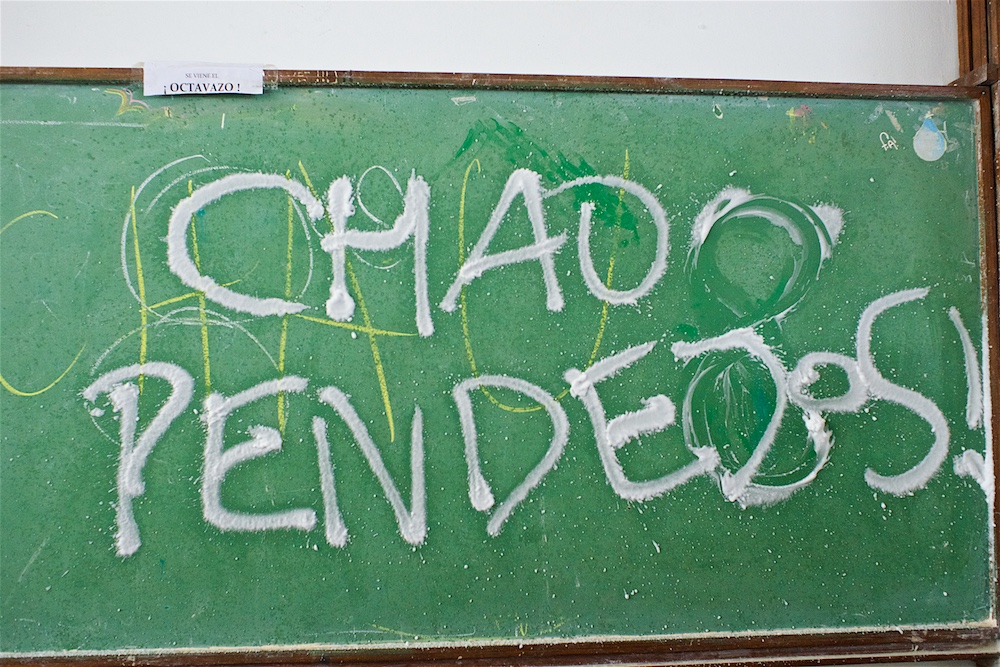 SE VIENE EL
¡ OCTAVAZO !
CHAO
PENDEJOS!